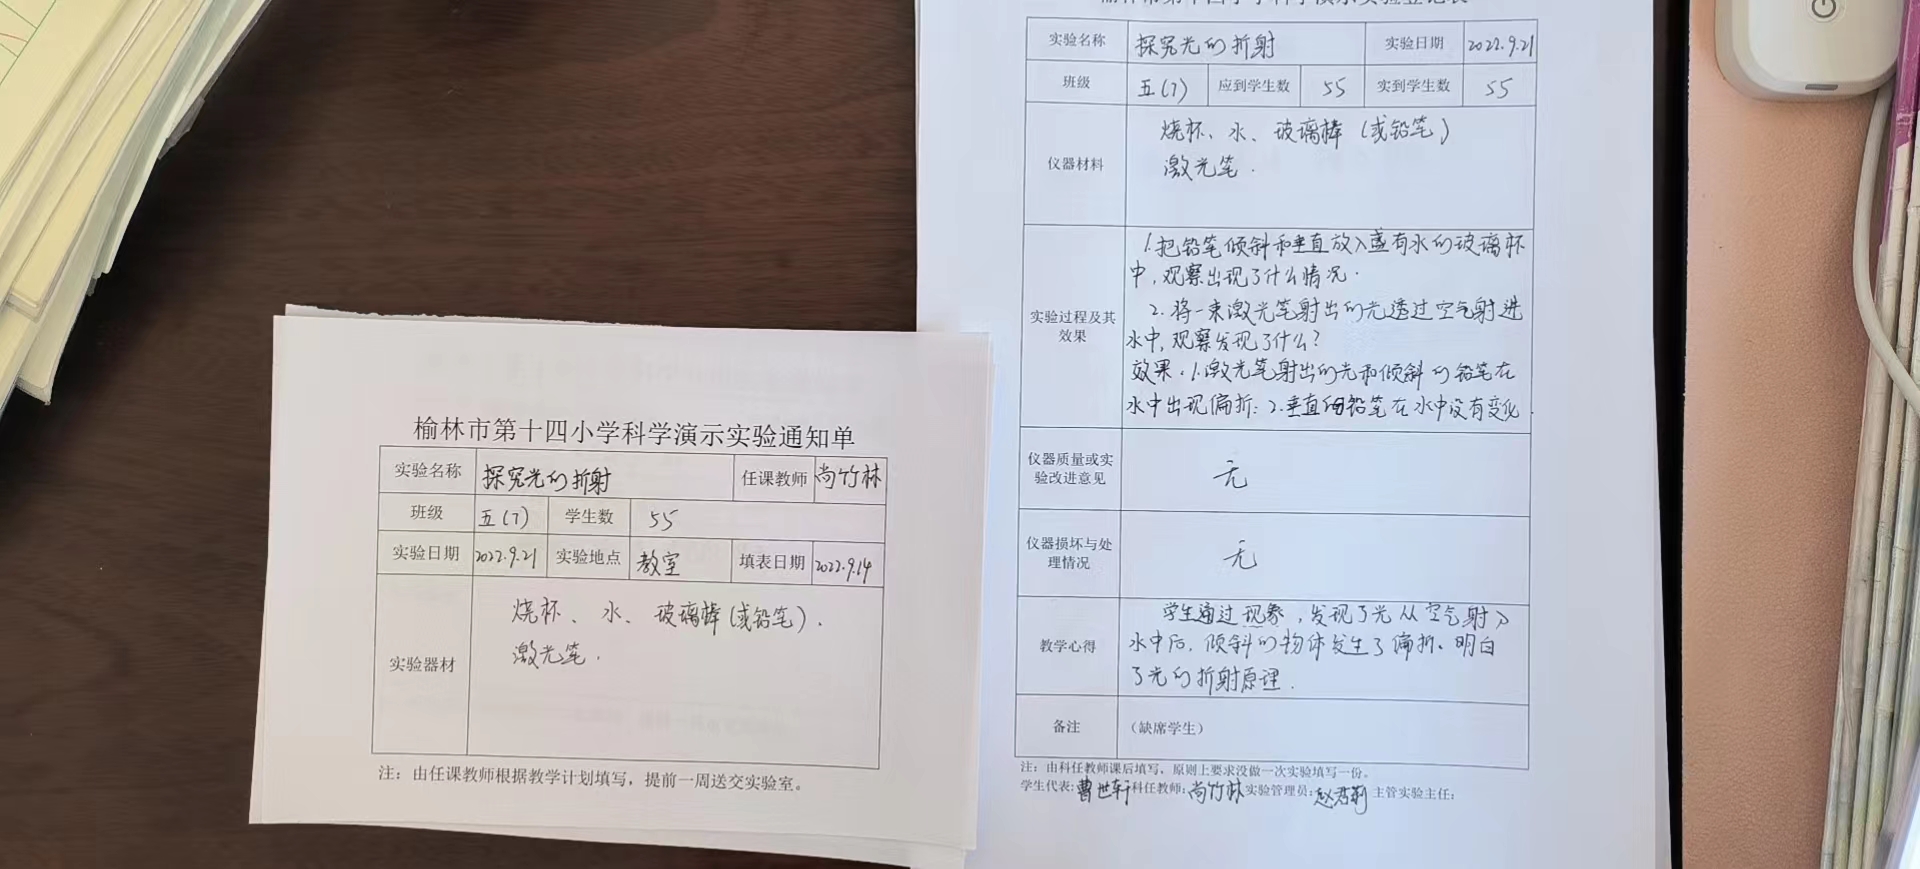 榆林市第十四小学科学演示实验通知单
实验名称 探究光的折射 任课教师 尚竹林
班级 五(7) 学生数 55
实验日期 2022.9.21 实验地点 教室 填表日期 2022.9.14
实验器材
烧杯、水、玻璃棒(或铅笔).
激光笔.
注：由任课教师根据教学计划填写，提前一周送交实验室。
榆林市第十四小学科学演示实验登记表
实验名称 探究光的折射 实验日期 2022.9.21
班级 五(7) 应到学生数 55 实到学生数 55
仪器材料
烧杯、水、玻璃棒(或铅笔)
激光笔.
实验过程及其
效果
1.把铅笔倾斜和垂直放入盛有水的玻璃杯
中,观察出现了什么情况.
2.将一束激光笔射出的光透过空气射进
水中,观察发现了什么?
效果.1.激光笔射出的光和倾斜的铅笔在
水中出现偏折:2.垂直的铅笔在水中没有变化.
仪器质量或实
验改进意见
无
仪器损坏与处
理情况
无
教学心得
学生通过现象,发现了光从空气射入
水中后,倾斜的物体发生了偏折。明白
了光的折射原理.
备注 （缺席学生）
注：由科任教师课后填写，原则上要求没做一次实验填写一份。
学生代表:曹世轩科任教师:尚竹林实验管理员: 主管实验主任: